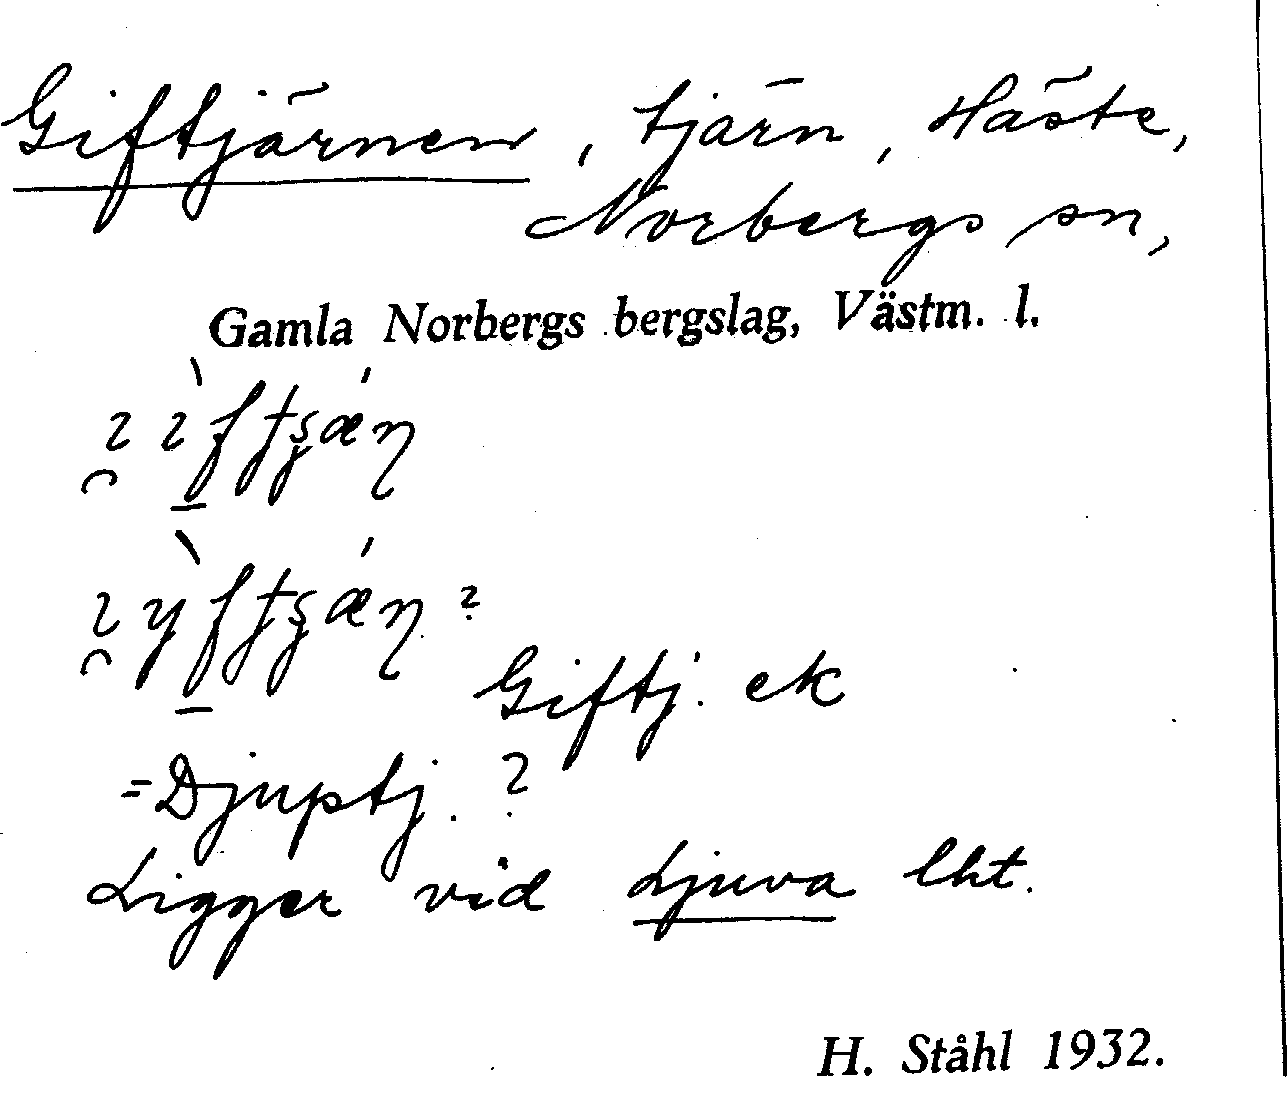 Giftjärnen, tjärn, Häste,
Norbergs sn,
Gamla Norbergs bergslag, Västm. l.
Giftj. ek
=Djuptj. ?
Ligger vid Ljuva lht.
H. Ståhl 1932.